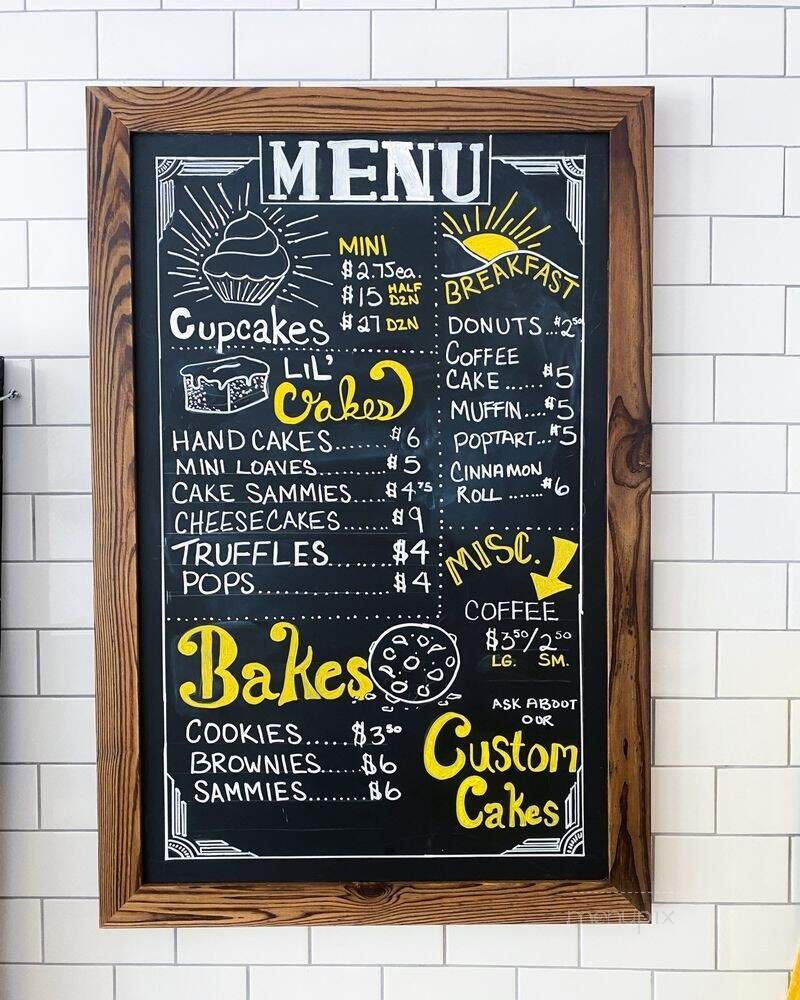 MENU
Cupcakes
MINI
$2.75ea.
$15 HALF DZN
$27 DZN
LiL'
Cakes
HAND CAKES......$6
MINI LOAVES.........$5
CAKE SAMMIES....$4.75
CHEESECAKES......$9
TRUFFLES.......$4
POPS..............$4
Bakes
COOKIES.....$3.50
BROWNIES....$6
SAMMIES.......$6
BREAKFAST
DONUTS...$2.50
COFFEE
CAKE......$5
MUFFIN....$5
POPTART...$5
CINNAMON
ROLL.......$6
MISC.
COFFEE
$3.50/2.50
LG. SM.
ASK ABOUT
OUR
Custom
Cakes
menupix